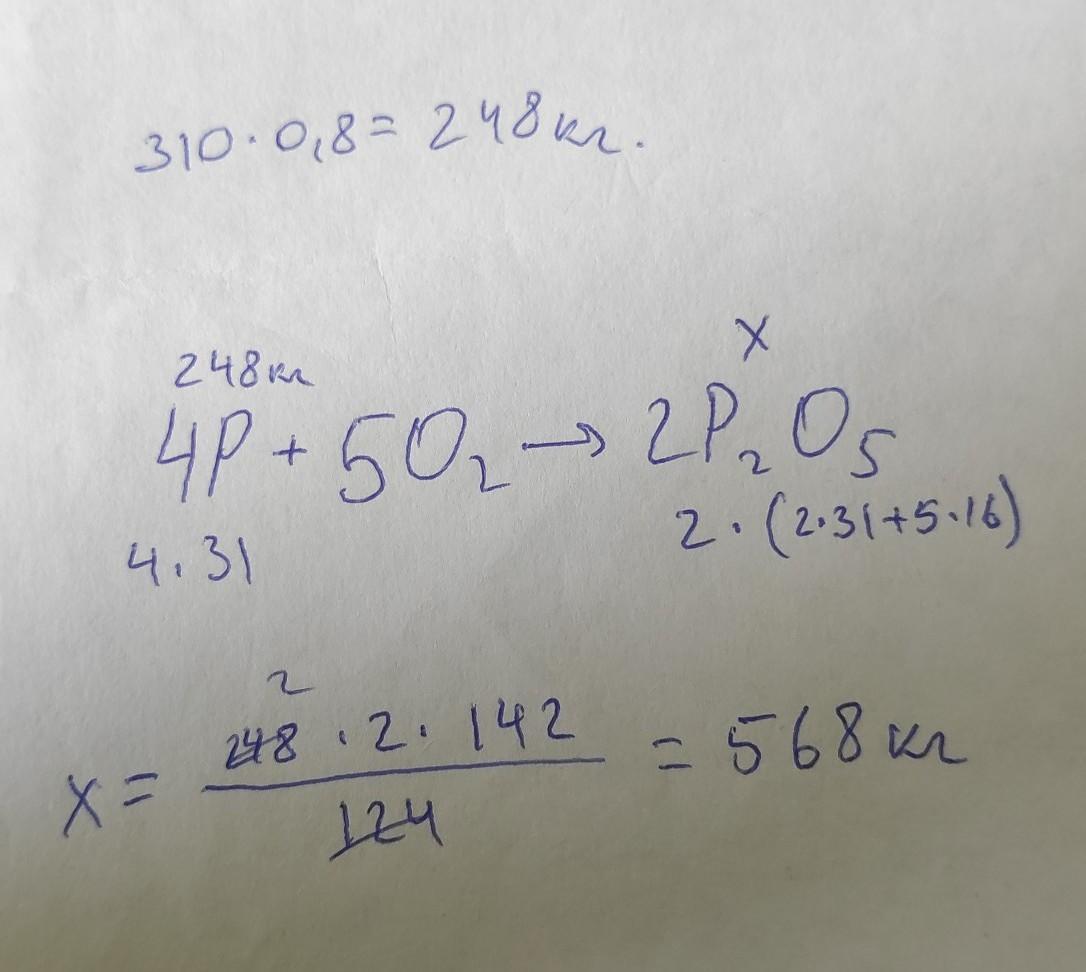 310·0,8= 248кг.
x
248кг
4P + 5O₂ → 2P₂O₅
4·31 2·(2·31+5·16)
2
x = 248·2·142 / 124 = 568 кг